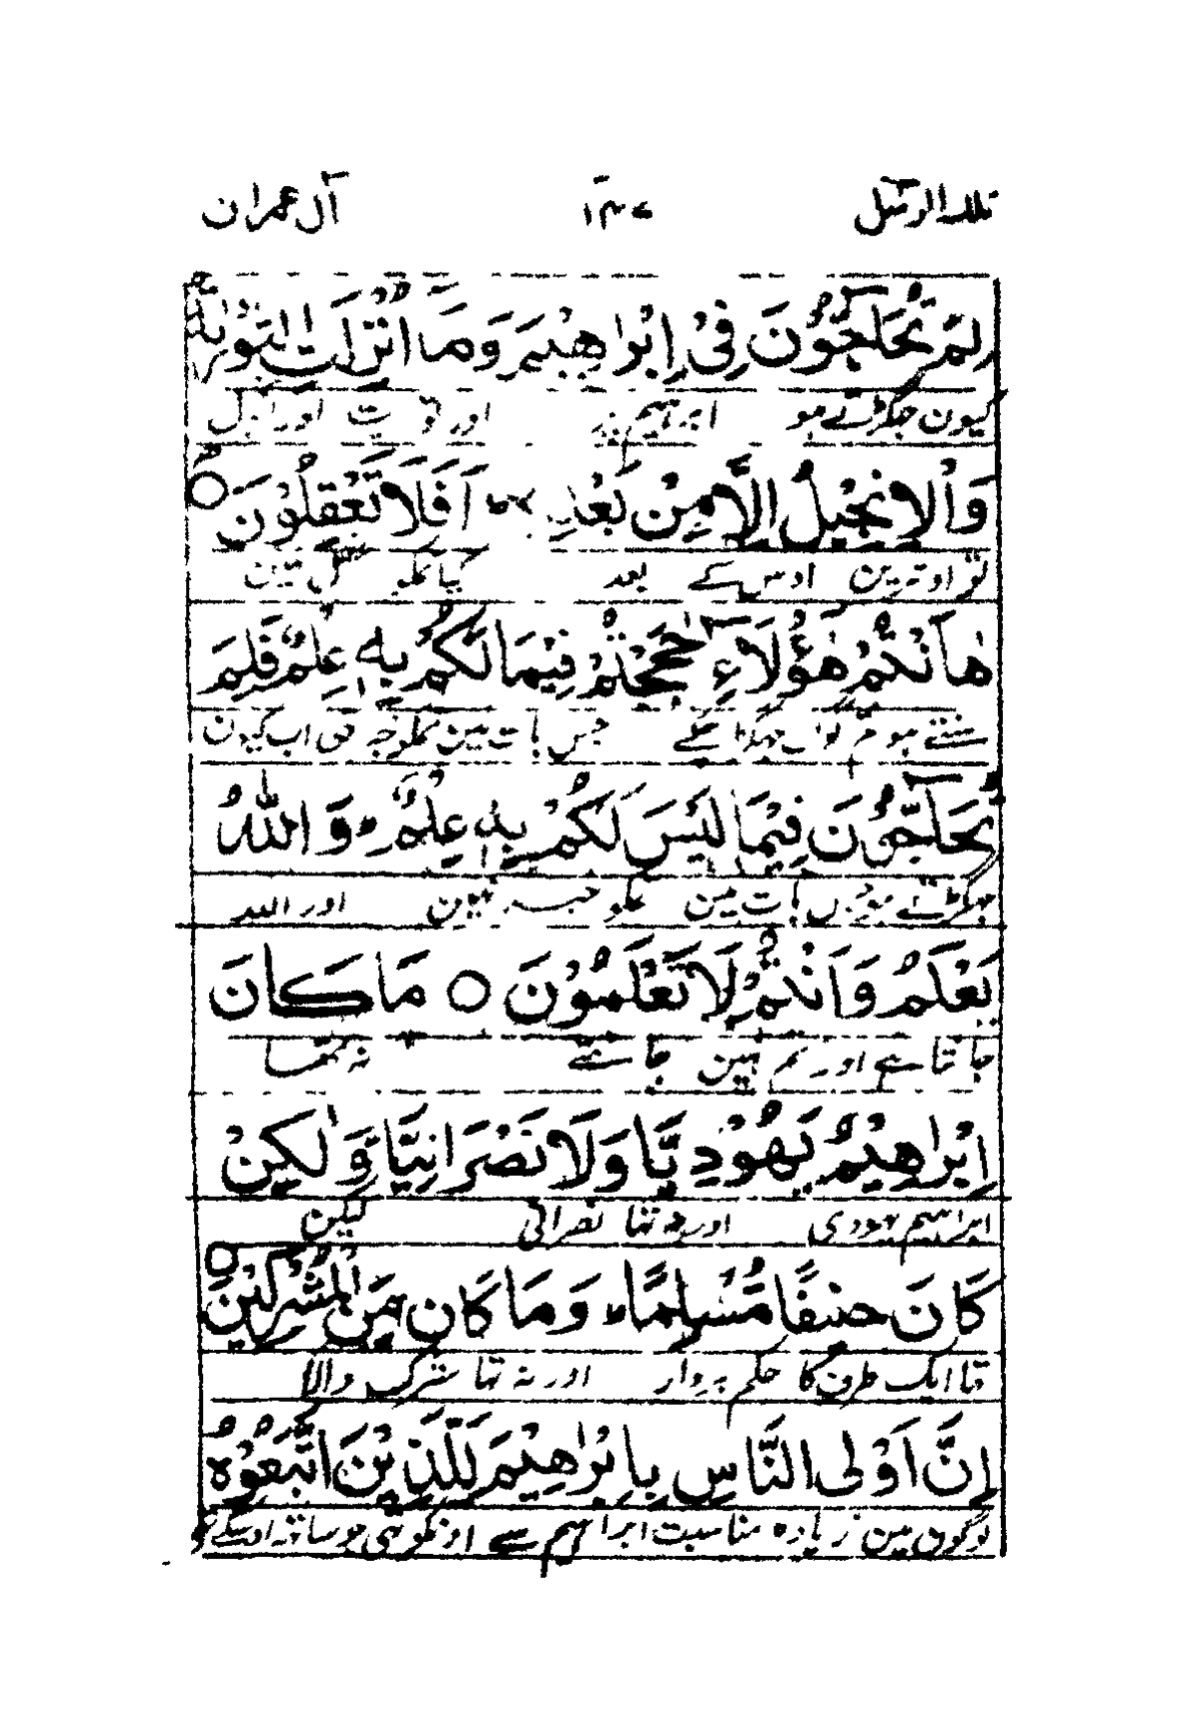 تلك الرسل ١٣٧ آل عمران
لِمَ تُحَآجُّوْنَ فِيْٓ اِبْرٰهِيْمَ وَمَآ اُنْزِلَتِ التَّوْرٰىةُ
کیون جہگڑتے ہو ابراہیم پر اور توریت اور انجیل
وَالْاِنْجِيْلُ اِلَّا مِنْ بَعْدِهٖ اَفَلَا تَعْقِلُوْنَ ○
تو اوترین اوس کے بعد کیا تمکو عقل نہین
هٰٓاَنْتُمْ هٰٓؤُلَآءِ حٰجَجْتُمْ فِيْمَا لَكُمْ بِهٖ عِلْمٌ فَلِمَ
سنتے ہو تم لوگ جہگڑ چکے جس بات مین تمکو خبر تھی اب کیون
تُحَآجُّوْنَ فِيْمَا لَيْسَ لَكُمْ بِهٖ عِلْمٌ ؕ وَاللّٰهُ
جہگڑتے ہو جس بات مین تمکو خبر نہین اور اللہ
يَعْلَمُ وَاَنْتُمْ لَا تَعْلَمُوْنَ ○ مَا كَانَ
جانتا ہے اور تم نہین جانتے نہ تھا
اِبْرٰهِيْمُ يَهُوْدِيًّا وَلَا نَصْرَانِيًّا وَّلٰكِنْ
ابراہیم یہودی اور نہ تھا نصرانی لیکن
كَانَ حَنِيْفًا مُّسْلِمًا ؕ وَمَا كَانَ مِنَ الْمُشْرِكِيْنَ ○
تھا ایک طرف کا حکم بردار اور نہ تھا شرک والا
اِنَّ اَوْلَى النَّاسِ بِاِبْرٰهِيْمَ لَلَّذِيْنَ اتَّبَعُوْهُ
لوگون مین زیادہ مناسبت ابراہیم سے اونکو تھی جو ساتھ اوسکے تھے